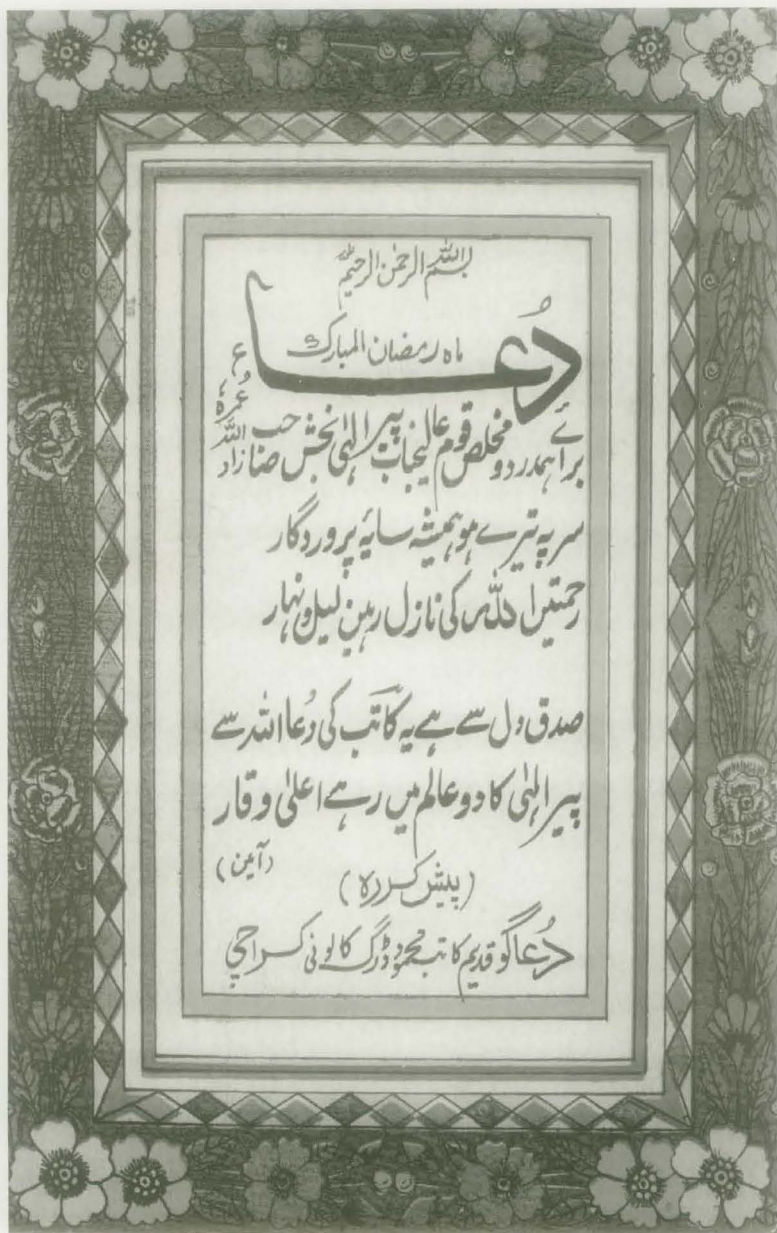 بسم اللہ الرحمٰن الرحیم
دُعا
ماہ رمضان المبارک
برائے ہمدرد و مخلص قوم عالیجناب پیر الٰہی بخش صاحب زاد اللہ عمرہٗ
سر پہ تیرے ہو ہمیشہ سایۂ پروردگار
رحمتیں اللہ کی نازل رہیں لیل و نہار
صدق دل سے ہے یہ کاتب کی دُعا اللہ سے
پیر الٰہی کا دو عالم میں رہے اعلیٰ وقار
(آمین)
(پیش کردہ)
دُعاگو قدیم کاتب محمود ڈرگ کالونی کراچی